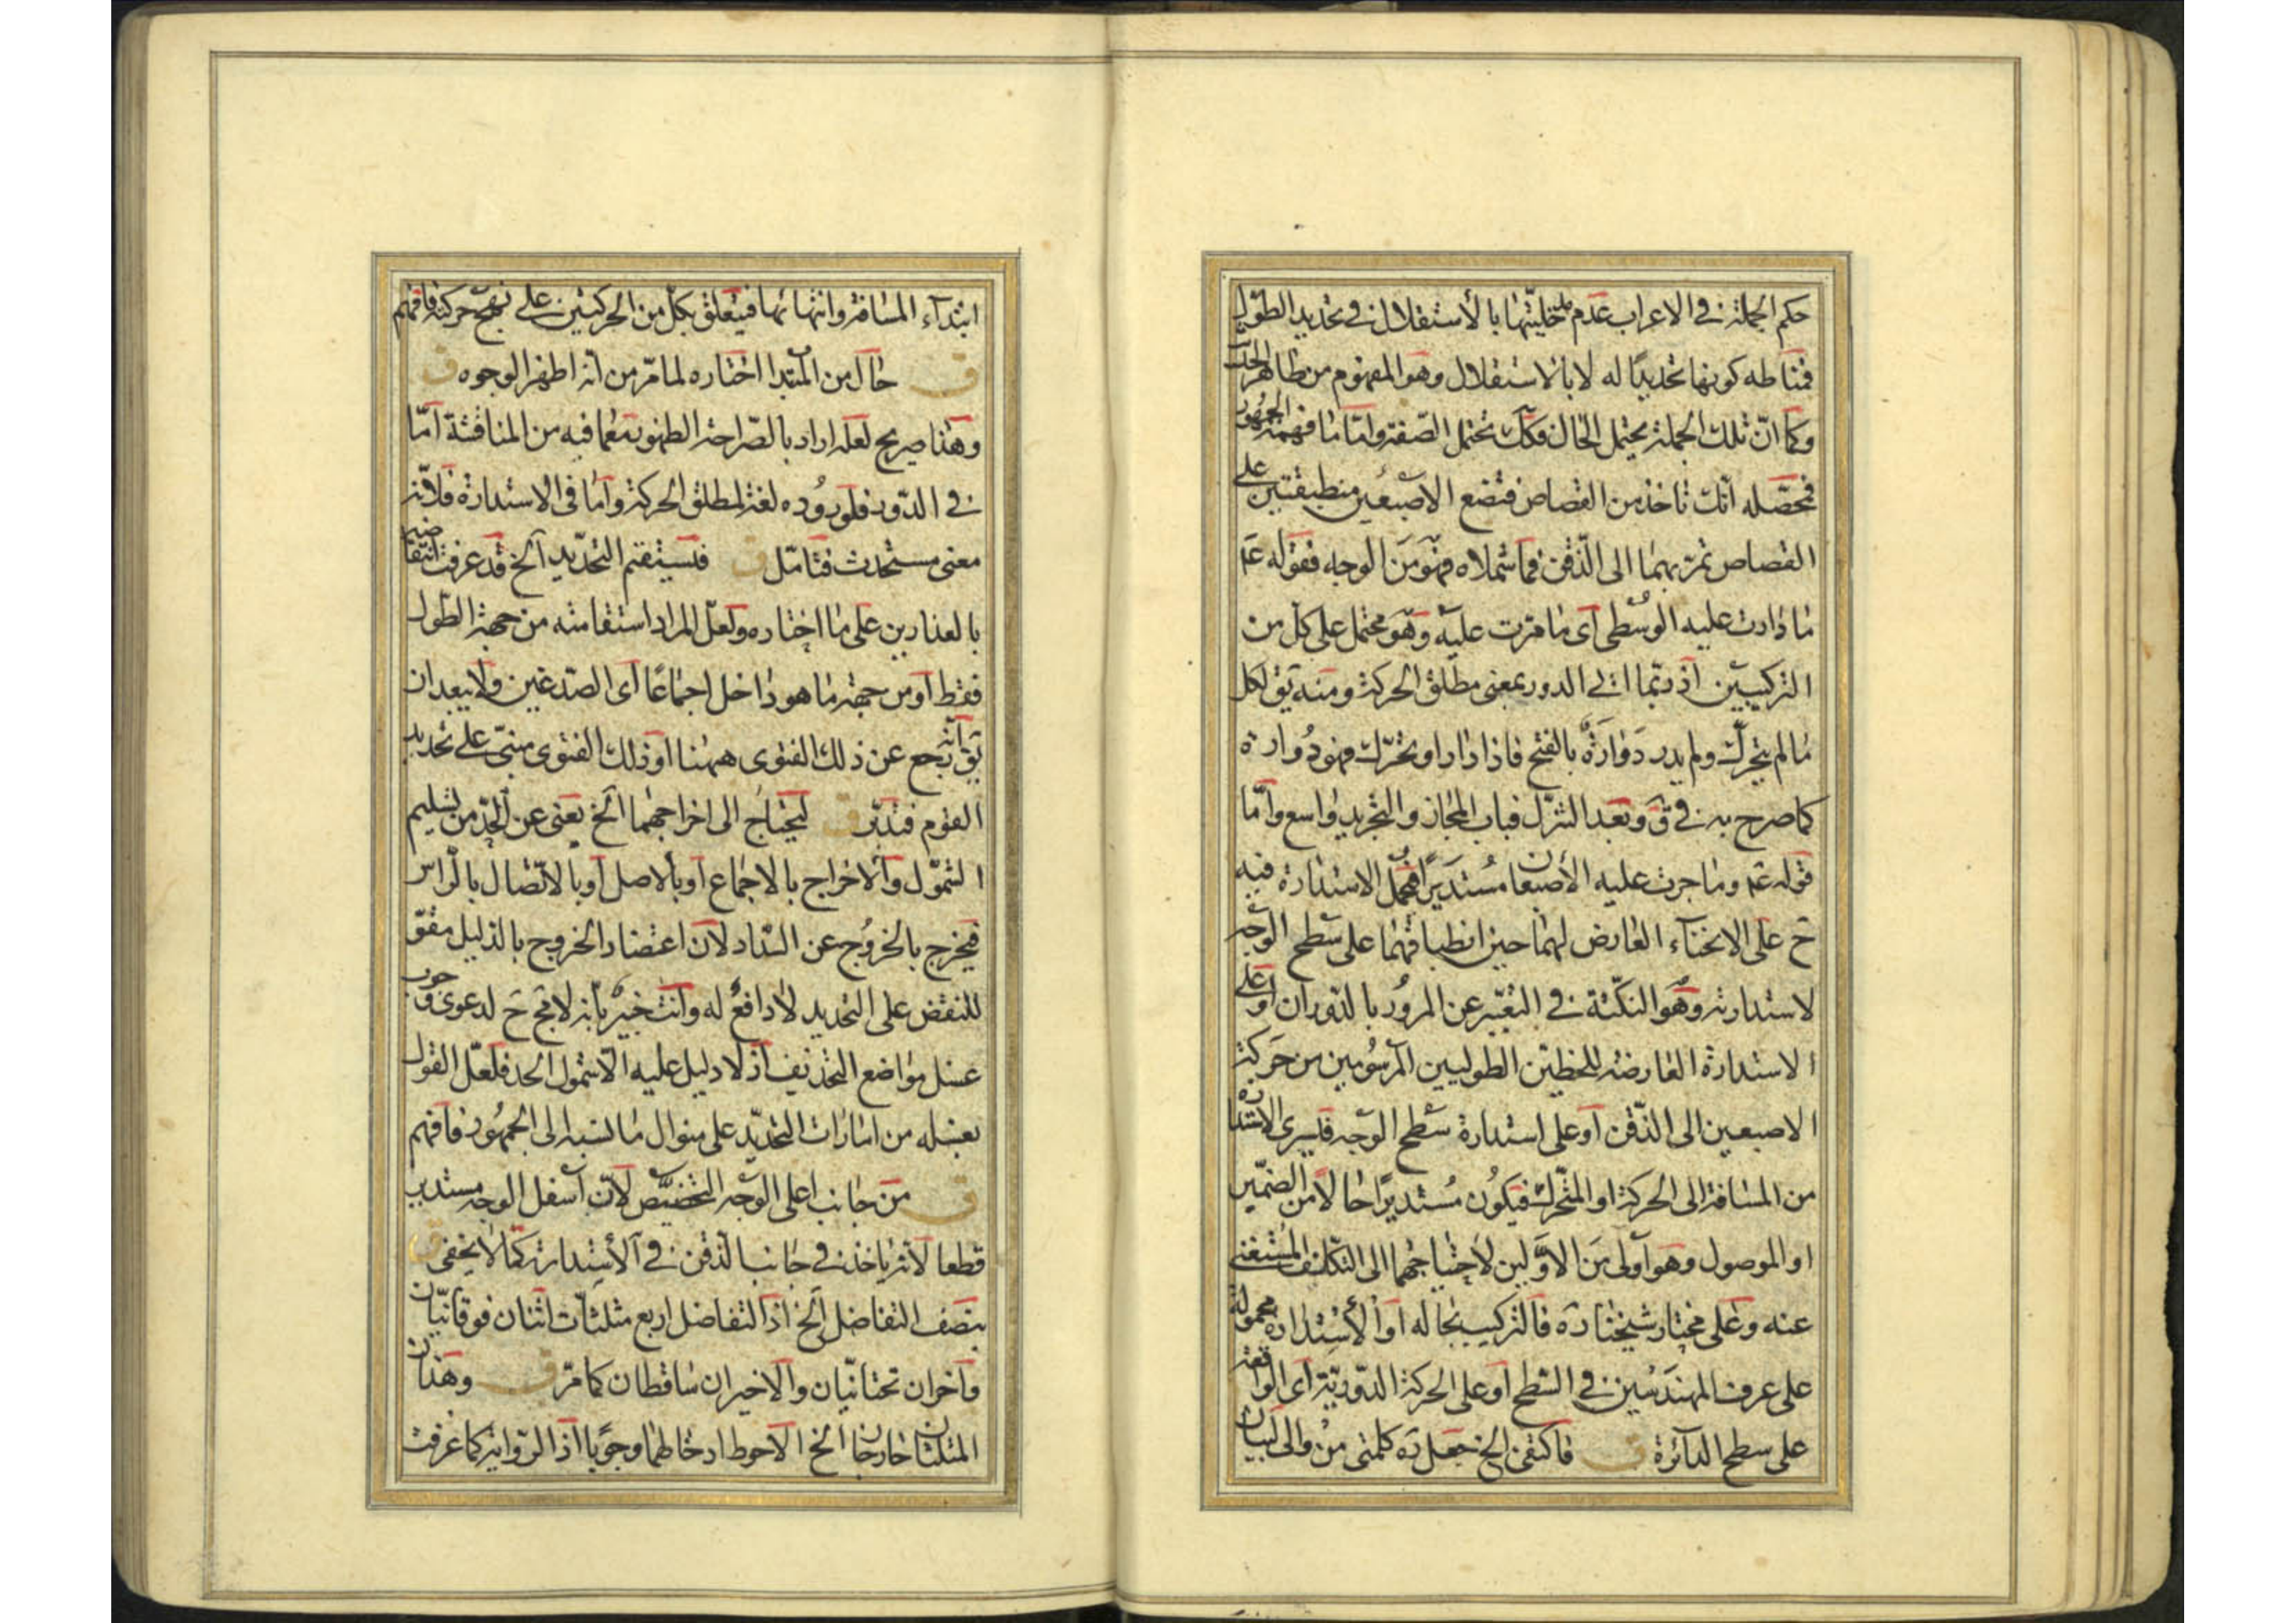 حكم الجملة في الاعراب عدم مدخليتها بالاستقلال في تحديد الطول
فمناطه كونها تحديدًا له لا بالاستقلال وهو المفهوم من ظاهر الخبر
وكما ان تلك الجملة يحتمل الحال فكك تحتمل الصفة وامّا ما فهمه الجمهور
فمحصّله انّك تاخذ من القصاص فتضع الاصبعين منطبقتين على
القصاص تمرّ بهما الى الذّقن فما شملاه فهو من الوجه فقوله عم
ما دارت عليه الوسطى اى ما مرّت عليه وهو محتمل على كل من
التركيبين اذ ربّما اتى الدور بمعنى مطلق الحركة ومنه يق لكل
ما لم يتحرّك ولم يدر دَوّارَةٌ بالفتح فاذا دار او تحرّك فهو دُوارة
كما صرح به في ق وبعد التنزّل فباب المجاز والتجريد واسع وامّا
قوله عم وما جرت عليه الأصبعان مُستَديرًا فمحمل الاستدارة فيه
ح على الانحنآء العارض لهما حين انطباقهما على سطح الوجه
لاستدارته وهو النكتة في التعبير عن المرور بالدّوران او على
الاستدارة العارضة للخطين الطوليين المرسُومين من حركة
الاصبعين الى الذّقن او على استدارة سطح الوجه فليسرى الاستداره
من المسافة الى الحركة او المتحرّك فيكون مُستديرًا حالًا من الضمير
او الموصول وهو اولى من الاوّلين لاحتياجهما الى التكلف المستغنى
عنه وعلى مختار شيخنا ره فالتركيب بحاله او الأستدارة محمولة
على عرف المهندسين في السّطح او على الحركة الدّوريّة اى الواقعة
على سطح الدائرة ق فاكتفى الخ جعل ره كلمتى من والى لبيان
ابتدآء المسافة وانتهائها فيتعلق بكل من الحركتين على نهج حركته فافهم
ق حال من المبتدا اختاره لما مرّ من انّه اظهر الوجوه ق
وهذا صريح لعله اراد بالصّراحة الظهور مع ما فيه من المناقشة امّا
في الدّور فلورُوده لغة لمطلق الحركة وامّا فى الاستدارة فلانّه
معنى مستحدث فتامّل ق فسيتقم التحديد الخ قد عرفت انتقاضه
بالعذارين على ما اختاره ولعل المراد استقامته من جهة الطّول
فقط او من جهة ما هو داخل اجماعًا اى الصّدغين ولا يبعد ان
يق انّه رجع عن ذلك الفتوى ههنا او ذلك الفتوى مبنىّ على تحديد
القوم فتدبّر ق ليحتاج الى اخراجهما الخ يعنى عن الحدّ من تسليم
الشمول والاخراج بالاجماع او بالاصل او بالاتّصال بالراس
فيخرج بالخرُوج عن السّداد لان اعتضاد الخروج بالدليل مقوّ
للنقض على التحديد لا دافعٌ له وانت خبيرٌ بانه لا مح ح لدعوى وجوب
غسل مواضع التحذيف اذ لا دليل عليه الّا شمول الحد فلعلّ القول
بغسله من امارات التحديد على منوال ما نسبه الى الجمهُور فافهم
ق من جانب اعلى الوجه التخصيص لانّ اسفل الوجه مستدير
قطعا لانّه ياخذ في جانب الذقن في الأستدارة كما لا يخفى ق
بنصف التفاضل الخ اذ التفاضل اربع مثلثات اثنان فوقانيّان
وآخران تحتانيّان والاخيران ساقطان كما مرّ ق وهذان
المثلثان خارجان الخ الاحوط ادخالهما وجوبًا اذ الرّواية كما عرفت